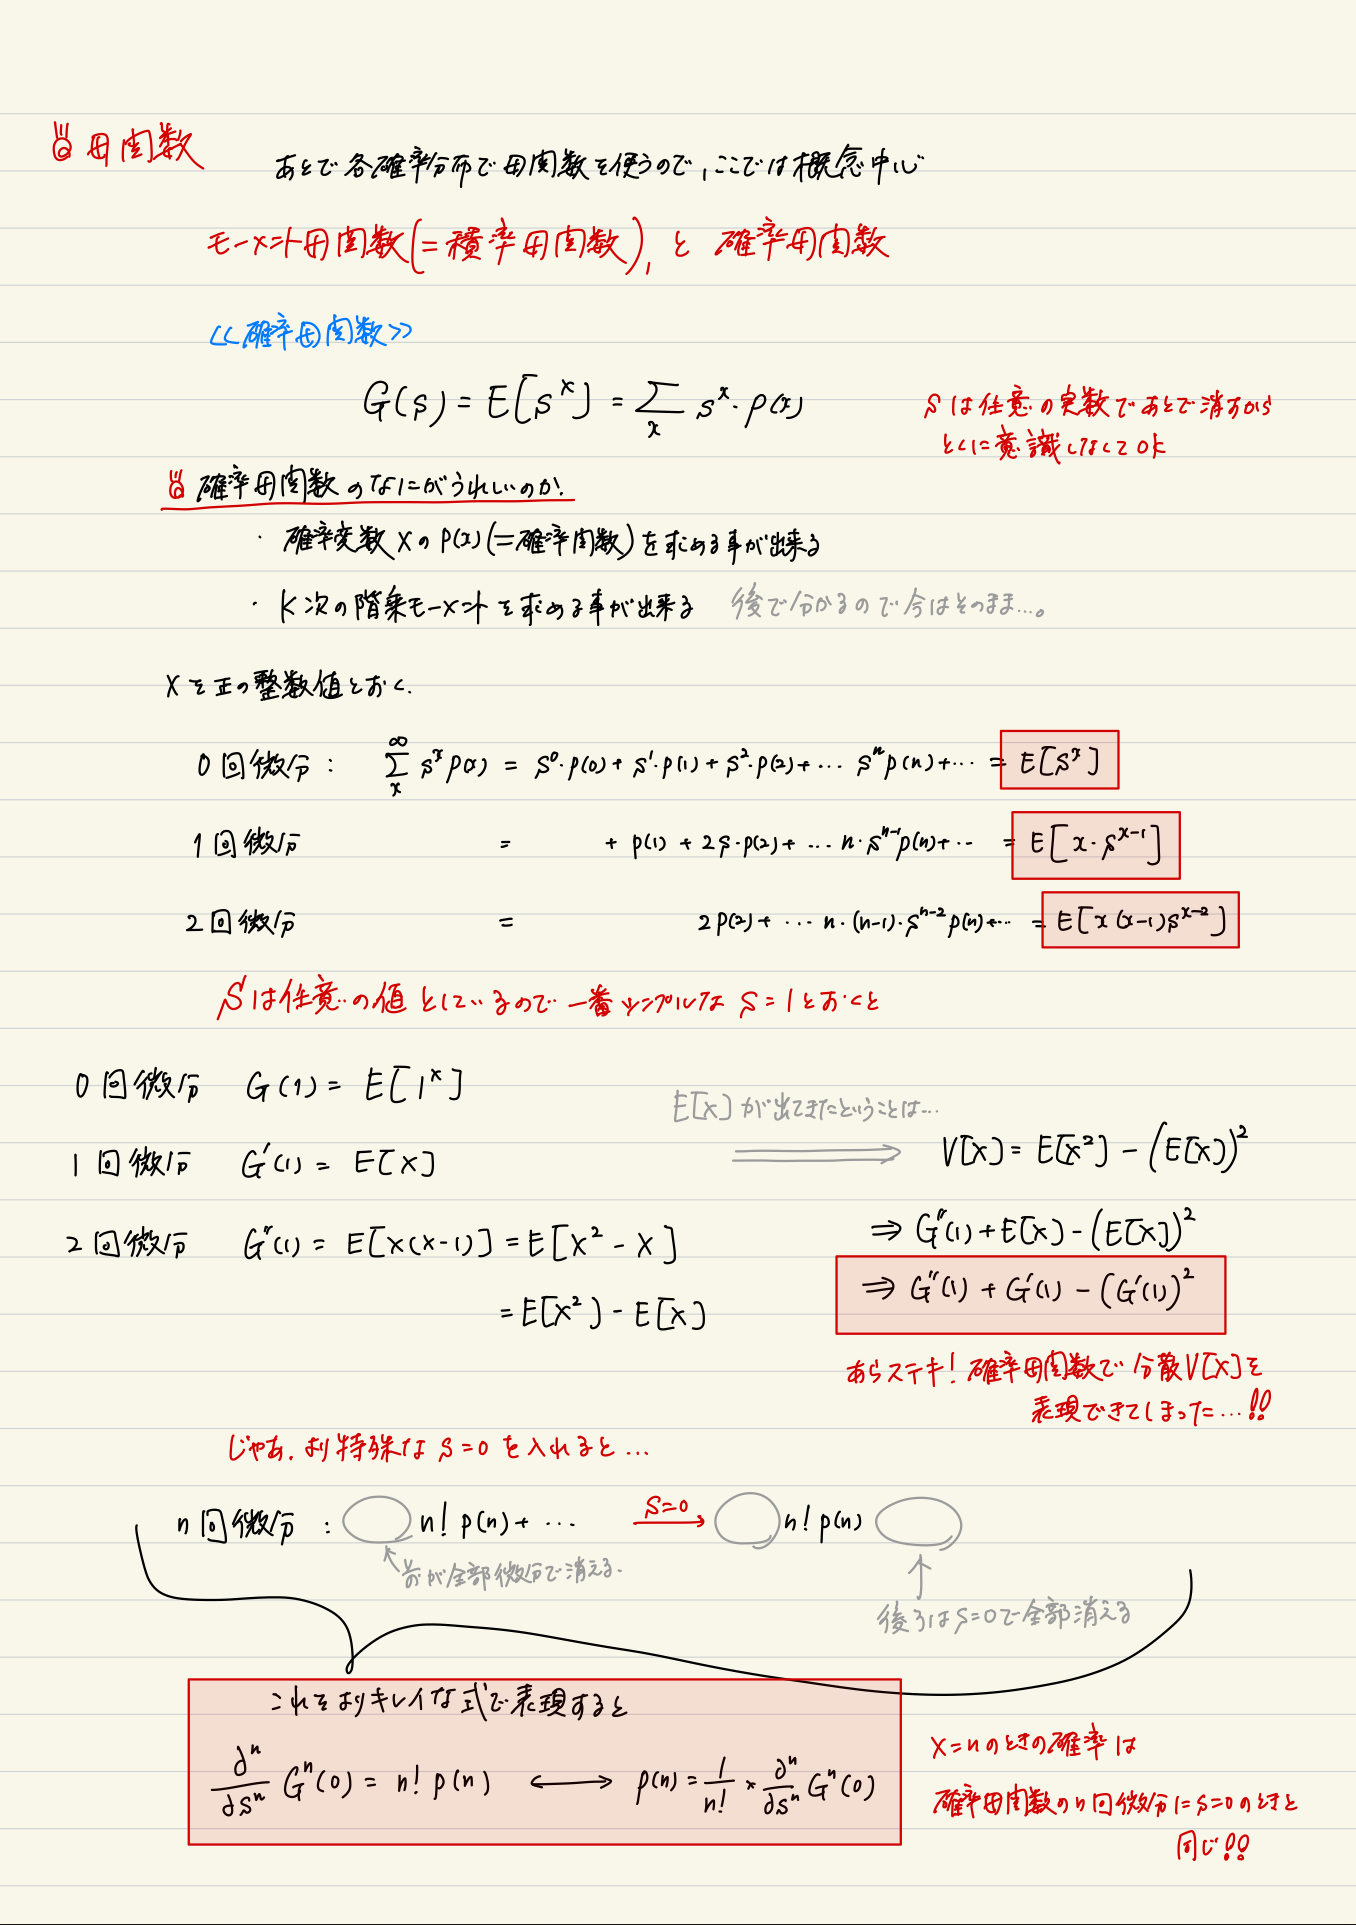 母関数
あとで各確率分布で母関数を使うので,ここでは概念中心
モーメント母関数(=積率母関数), と 確率母関数
<<確率母関数>>
G(s) = E[s^x] = Σ_x s^x・p(x)
sは任意の実数であとで消すから
とくに意識しなくてOK
確率母関数のなにがうれしいのか.
・ 確率変数Xのp(x)(=確率関数)を求める事が出来る
・ K次の階乗モーメントを求める事が出来る 後で分かるので今はそのまま...。
Xを正の整数値とおく.
0回微分: Σ_x^∞ s^x p(x) = s^0・p(0) + s^1・p(1) + s^2・p(2) + ... s^n p(n) + ... = E[s^x]
1回微分 = + p(1) + 2s・p(2) + ... n・s^{n-1} p(n) + ... = E[x・s^{x-1}]
2回微分 = 2p(2) + ... n・(n-1)・s^{n-2} p(n) + ... = E[x(x-1)s^{x-2}]
Sは任意の値としているので一番シンプルなS=1とおくと
0回微分 G(1) = E[1^x]
1回微分 G'(1) = E[X]
2回微分 G''(1) = E[X(X-1)] = E[X^2 - X]
= E[X^2] - E[X]
E[X]が出てきたということは...
V[X] = E[X^2] - (E[X])^2
⇒ G''(1) + E[X] - (E[X])^2
⇒ G''(1) + G'(1) - (G'(1))^2
あらステキ!確率母関数で分散V[X]を
表現できてしまった...!!
じゃあ.より特殊なS=0を入れると...
n回微分: n! p(n) + ... S=0 → n! p(n)
↑前が全部微分で消える.
↑後ろはS=0で全部消える
これをよりキレイな式で表現すると
∂^n/∂s^n G^n(0) = n! p(n) ⟷ p(n) = 1/n! × ∂^n/∂s^n G^n(0)
X=nのときの確率は
確率母関数のn回微分にS=0のときと
同じ!!